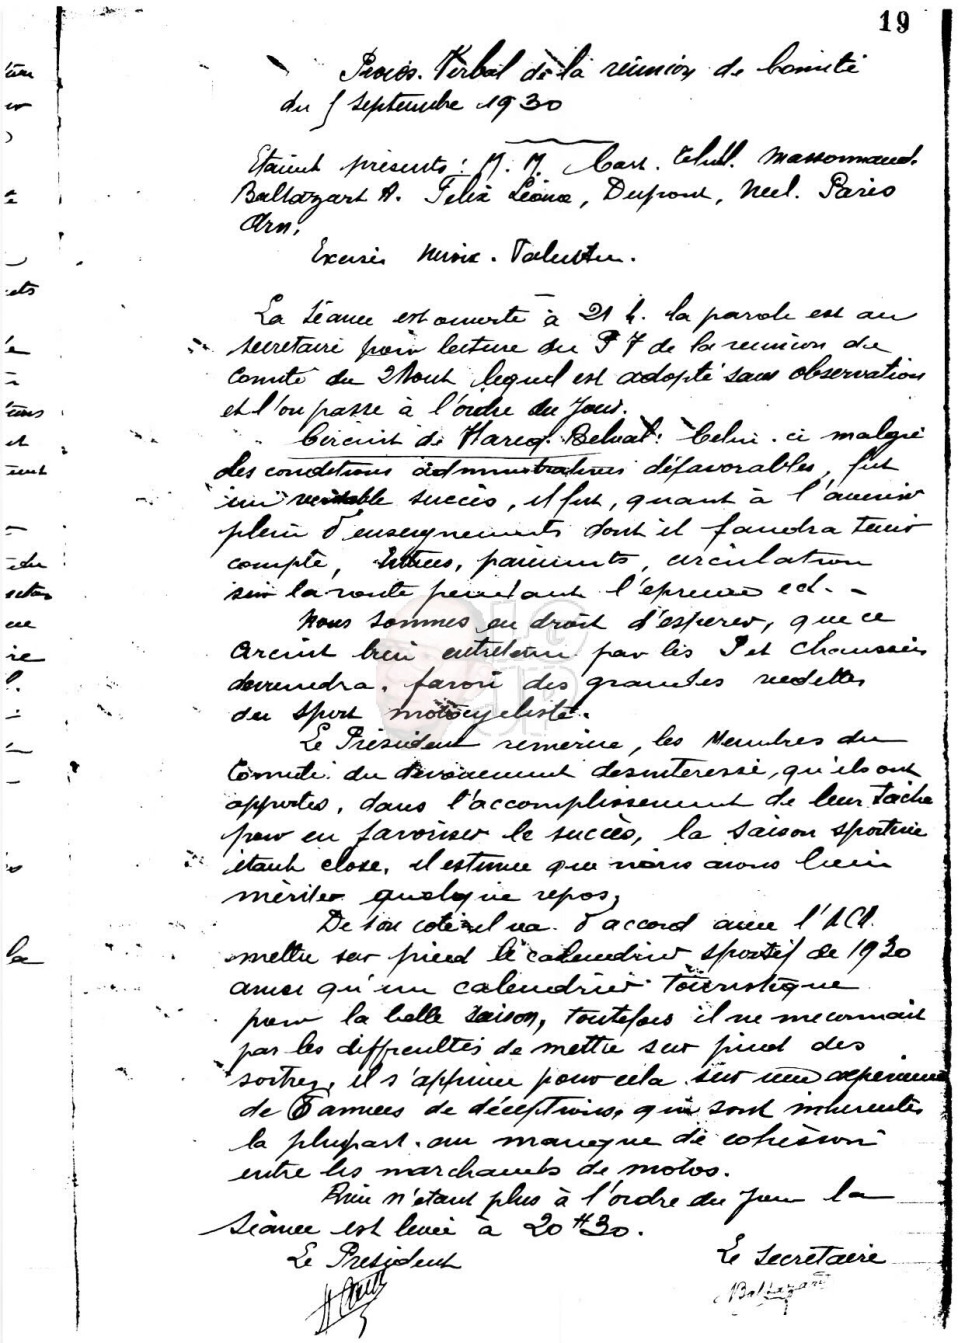 19
Procès. Verbal de la réunion de Comité
du 5 septembre 1930
Etaient présents: M. M. Cart. Massonnaud.
Baltazart A. Felix Léona, Dupont, Neel. Paris
Arn,
Excusés Valentin.
La Séance est ouverte à 21 h. la parole est au
secretaire pour lecture du P V de la reunion du
Comité du 2 Aout lequel est adopté sans observation
et l'on passe à l'ordre du jour.
Circuit de Marcq. Belval: Celui-ci malgré
des conditions administratives défavorables, fut
un veritable succès, il fut, quant à l'avenir
plein d'enseignements dont il faudra tenir
compte, Entrees, paiements, circulation
sur la route pendant l'épreuve ect. -
Nous sommes en droit d'esperer, que ce
circuit bien entretenu par les P et Chaussées
deviendra. favori des grandes vedettes
du sport motocycliste.
Le Président remercie, les Membres du
Comité. du devouement desinteressé, qu'ils ont
apportes, dans l'accomplissement de leur Tache
pour en favoriser le succès, la saison sportive
etant close, il estime que nous avons bien
mériter quelque repos,
De son coté il va. d'accord avec l'
mettre sur pied le calendrier sportif de 1930
ainsi qu'un calendrier touristique
pour la belle saison, toutefois il ne meconnait
pas les difficultés de mettre sur pied des
sorties, il s'appuie pour cela sur une experience
de 8 annees de déceptions, qui sont inherentes
la plupart. au manque de cohésion
entre les marchands de motos.
Rien n'etant plus à l'ordre du jour la
Séance est levée à 20 H 30.
Le President Le Secretaire
Baltazart